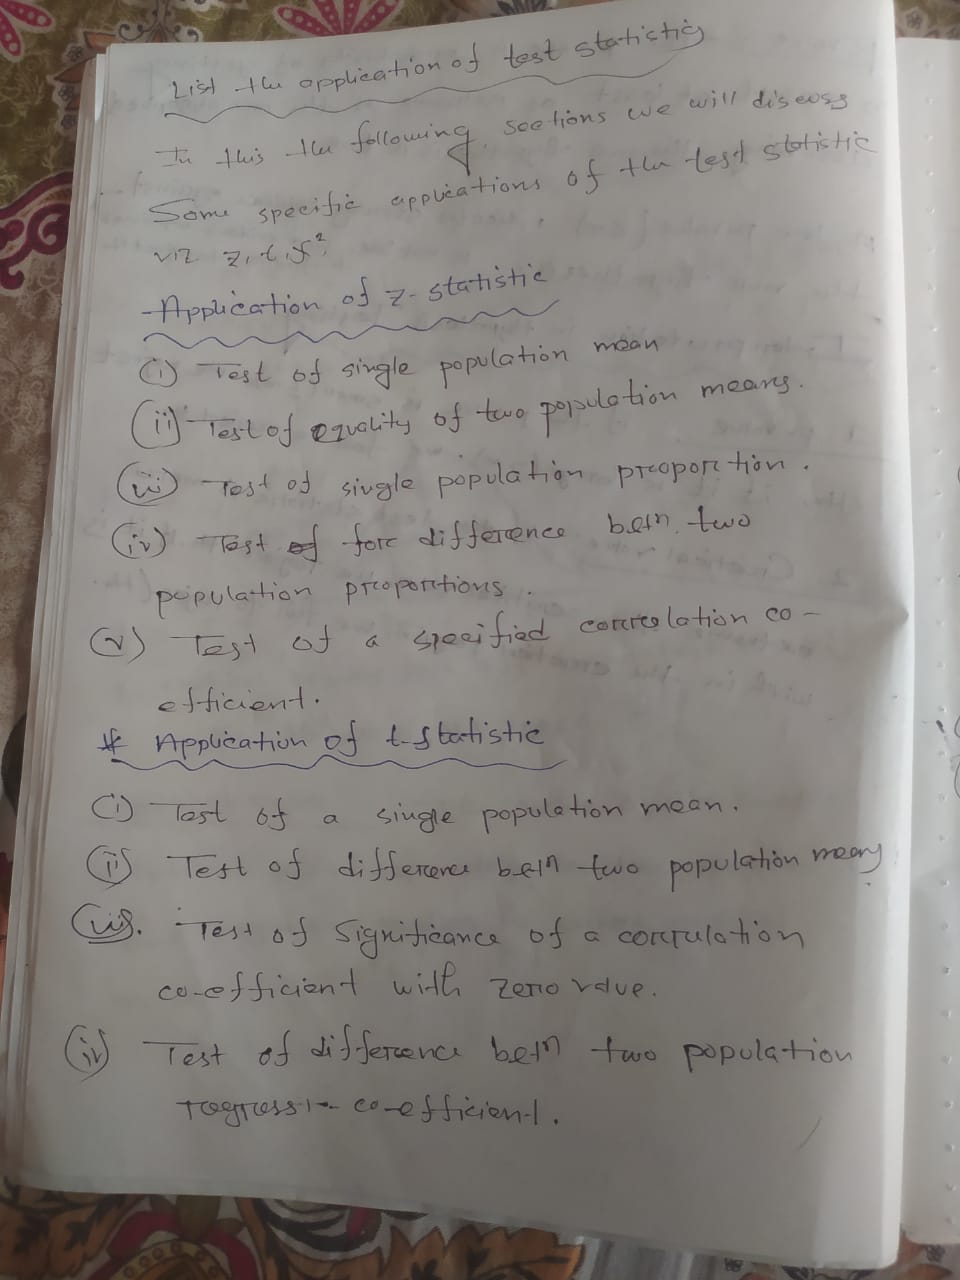 List the application of test statistics
In this the following sections we will discuss
Some specific applications of the test statistic
viz z, t,
Application of z-statistic
(i) Test of single population mean
(ii) Test of equality of two population means.
(iii) Test of single population proportion.
(iv) Test of for difference betn. two
population proportions.
(v) Test of a specified correlation co-
efficient.
* Application of t-statistic
(i) Test of a single population mean.
(ii) Test of difference betn two population means.
(iii). Test of significance of a correlation
co-efficient with zero value.
(iv) Test of difference betn two population
co-efficient.